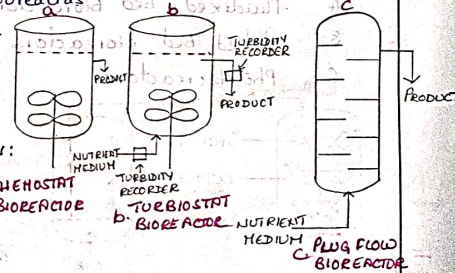 a
b
c
TURBIDITY
RECORDER
PRODUCT
PRODUCT
PRODUCT
NUTRIENT
MEDIUM
TURBIDITY
RECORDER
HEMOSTAT
BIOREACTOR
b. TURBIOSTAT
BIOREACTOR
NUTRIENT
MEDIUM
C. PLUG FLOW
BIOREACTOR